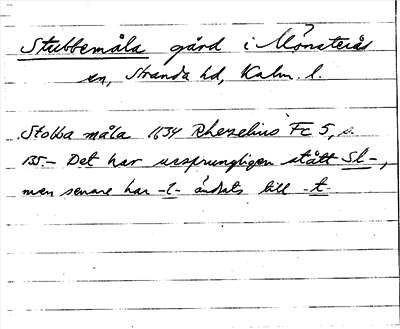 Stubbemåla gård i Mönsterås
sn, Stranda hd, Kalm. l.
Stobba måla 1634 Rhezelius Fc 5, s.
135 - Det har ursprungligen stått Sl-,
men senare har -l- ändrats till -t-